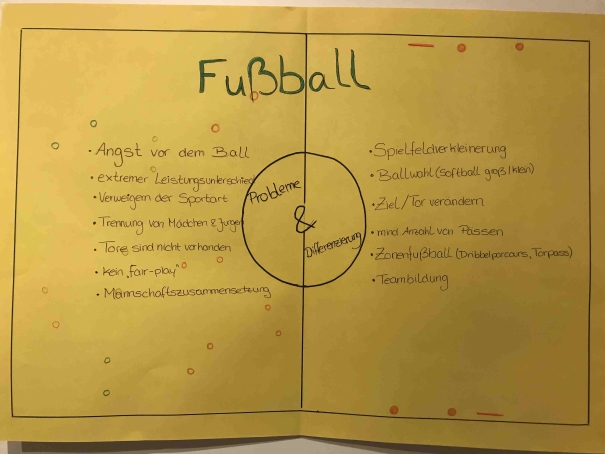 Fußball
Probleme
&
Differenzierung
• Angst vor dem Ball
• extremer Leistungsunterschied
• Verweigern der Sportart
• Trennung von Mädchen & Jungen
• Tore sind nicht vorhanden
• kein „Fair-play"
• Mannschaftszusammensetzung
• Spielfeldverkleinerung
• Ballwahl (Softball groß/klein)
• Ziel/Tor verändern
• mind Anzahl von Pässen
• Zonenfußball (Dribbelparcours, Torpass)
• Teambildung